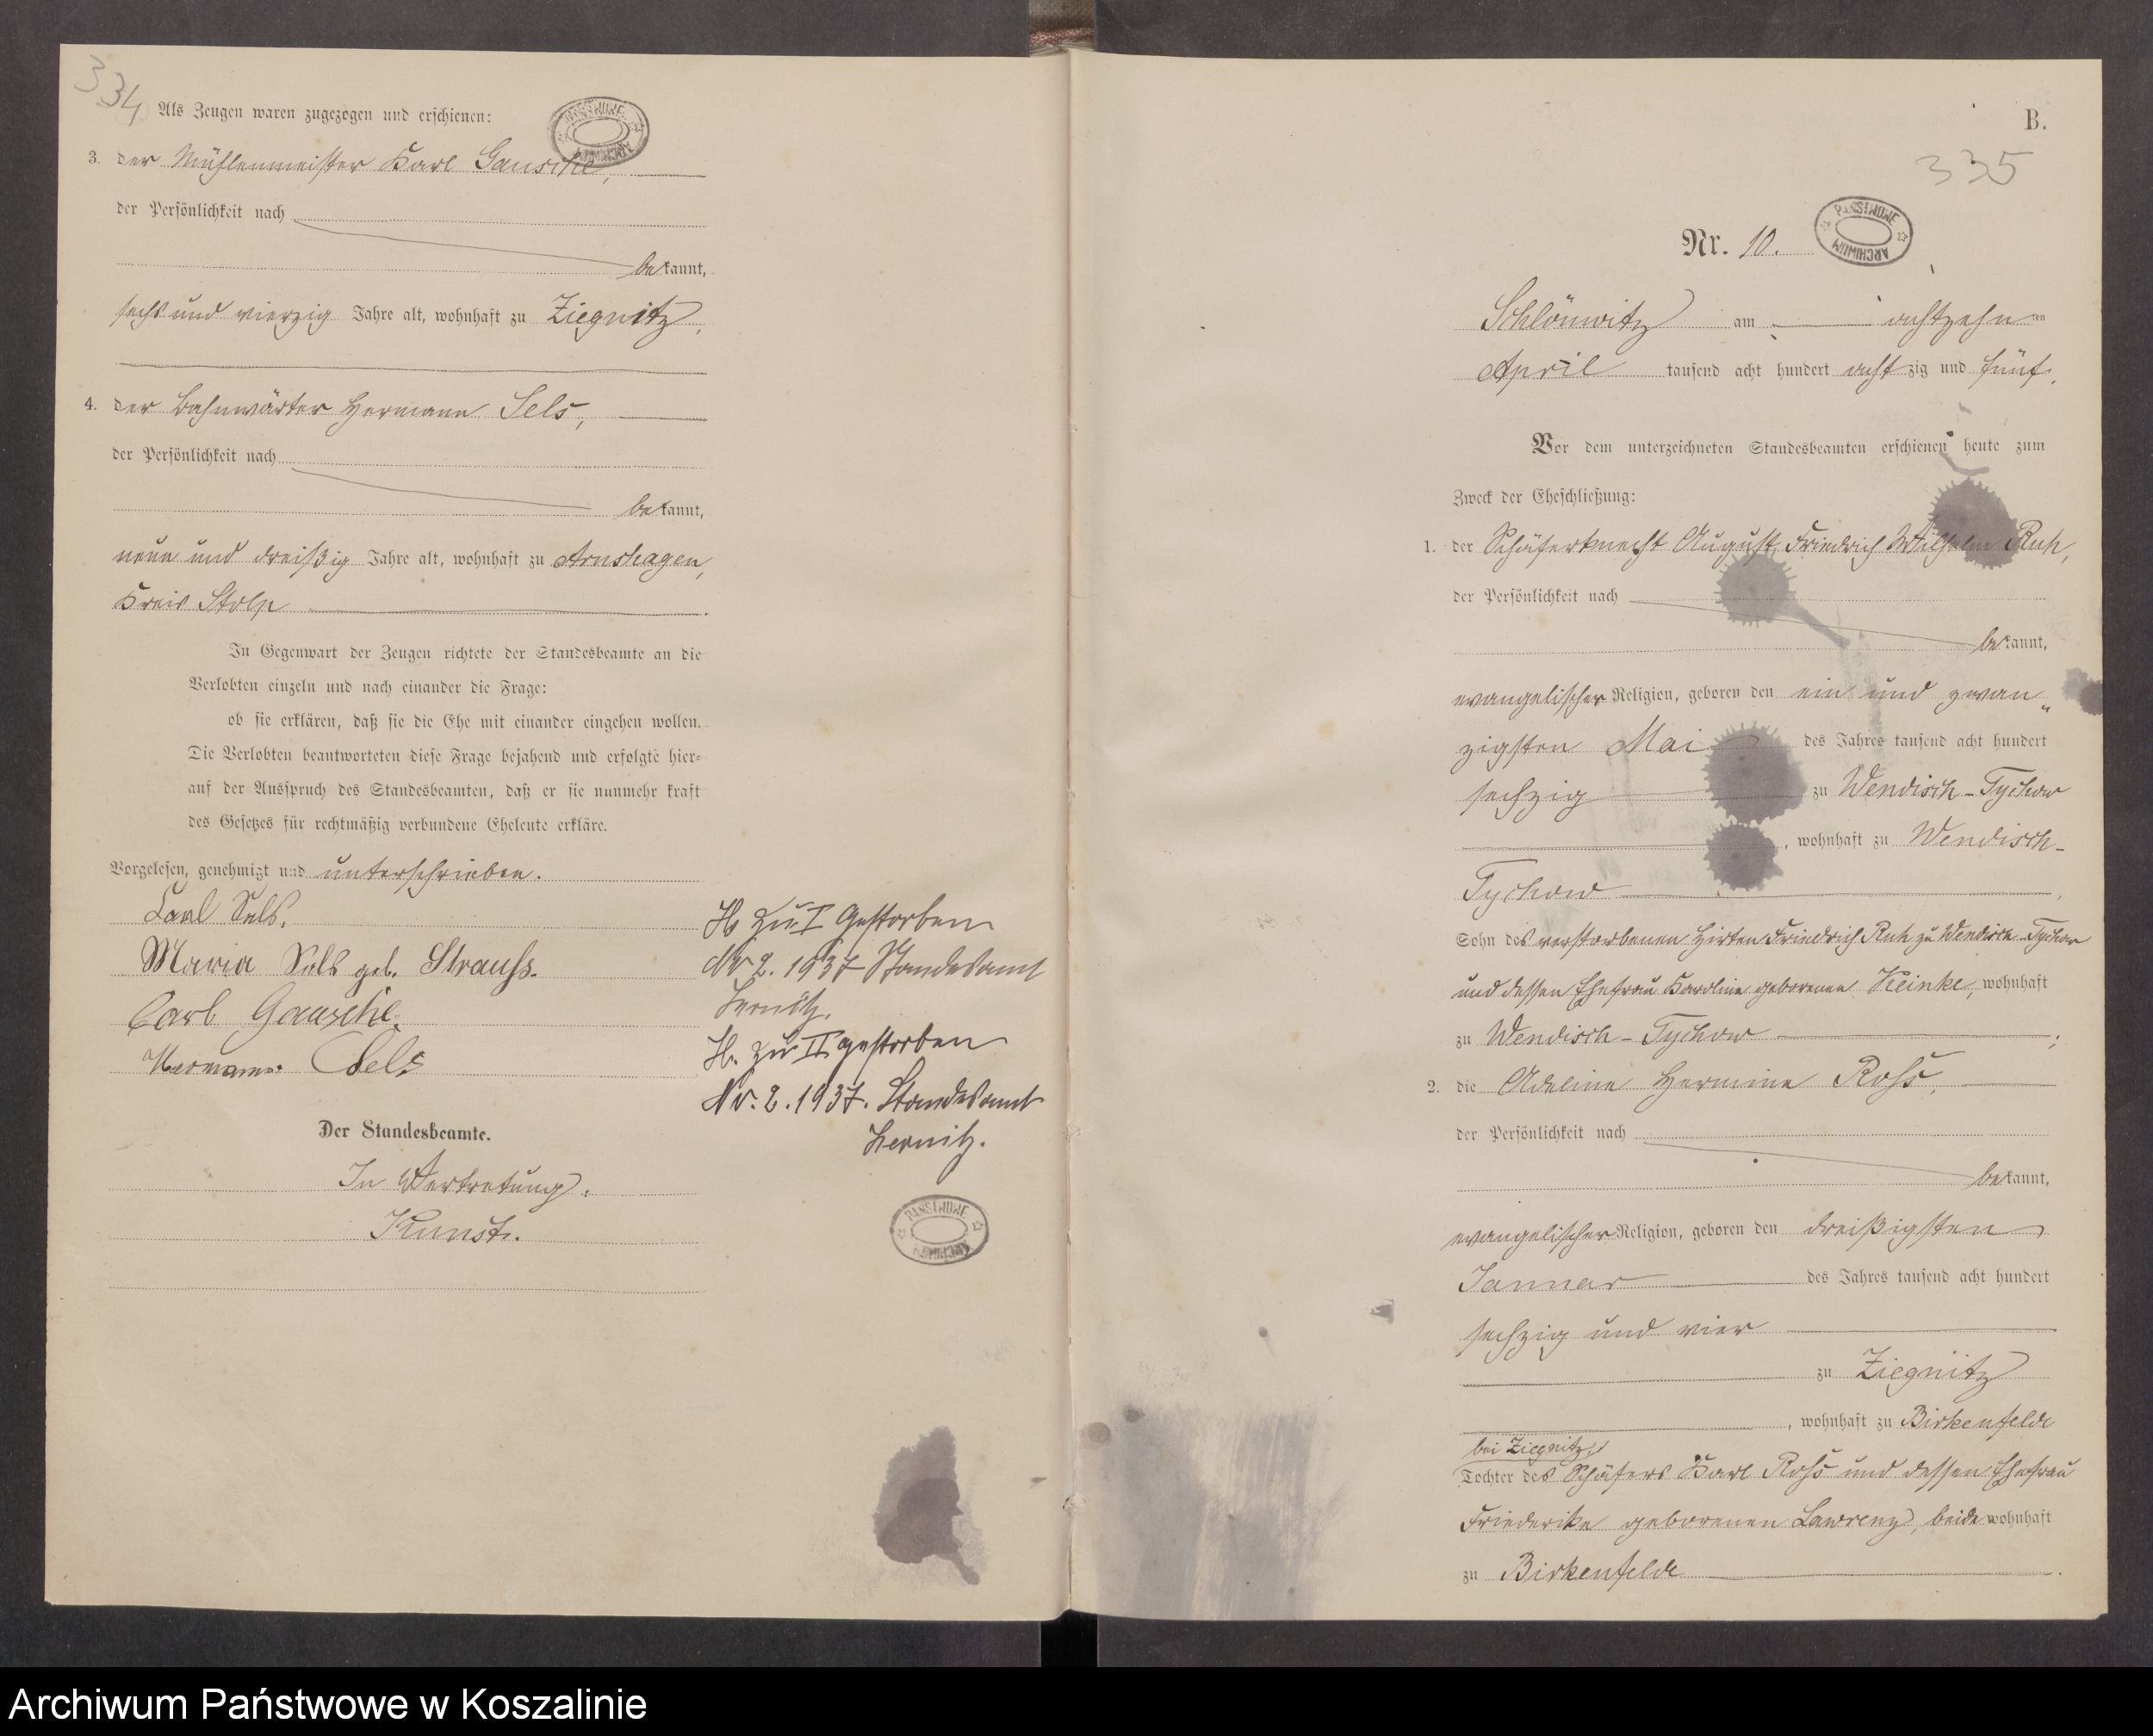 334
Als Zeugen waren zugezogen und erschienen:
3. der Mühlenmeister Karl Gauschke,
der Persönlichkeit nach
bekannt,
sechs und vierzig Jahre alt, wohnhaft zu Ziegnitz,
4. der Bahnwärter Hermann Sels,
der Persönlichkeit nach
bekannt,
neun und dreißig Jahre alt, wohnhaft zu Arnshagen,
Kreis Stolp.
In Gegenwart der Zeugen richtete der Standesbeamte an die
Verlobten einzeln und nach einander die Frage:
ob sie erklären, daß sie die Ehe mit einander eingehen wollen.
Die Verlobten beantworteten diese Frage bejahend und erfolgte hier-
auf der Ausspruch des Standesbeamten, daß er sie nunmehr kraft
des Gesetzes für rechtmäßig verbundene Eheleute erkläre.
Vorgelesen, genehmigt und unterschrieben.
Carl Sels.
Maria Sels geb. Strauß.
Carl Gauschke.
Hermann Sels
Der Standesbeamte.
In Vertretung.
Kunst.
H. zu I Gestorben
Nr 2. 1937 Standesamt
H. zu II gestorben
Nr. 2. 1937. Standesamt
PAŃSTWOWE ARCHIWUM
B.
335
Nr. 10.
PAŃSTWOWE ARCHIWUM
Schlönwitz am achtzehnten
April tausend acht hundert achtzig und fünf.
Vor dem unterzeichneten Standesbeamten erschienen heute zum
Zweck der Eheschließung:
1. der Schäferknecht August Friedrich Wilhelm Ruh,
der Persönlichkeit nach
bekannt,
evangelischer Religion, geboren den ein und zwan„
zigsten Mai des Jahres tausend acht hundert
sechzig zu Wendisch-Tychow
, wohnhaft zu Wendisch-
Tychow,
Sohn des verstorbenen Hirten Friedrich Ruh zu Wendisch-Tychow
und dessen Ehefrau Karoline geborenen Reinke, wohnhaft
zu Wendisch-Tychow;
2. die Adeline Hermine Roß,
der Persönlichkeit nach
bekannt,
evangelischer Religion, geboren den dreißigsten
Januar des Jahres tausend acht hundert
sechzig und vier
zu Ziegnitz
, wohnhaft zu Birkenfelde
bei Ziegnitz,
Tochter des Schäfers Karl Roß und dessen Ehefrau
Friederike geborenen Lawrenz, beide wohnhaft
zu Birkenfelde.
Archiwum Państwowe w Koszalinie